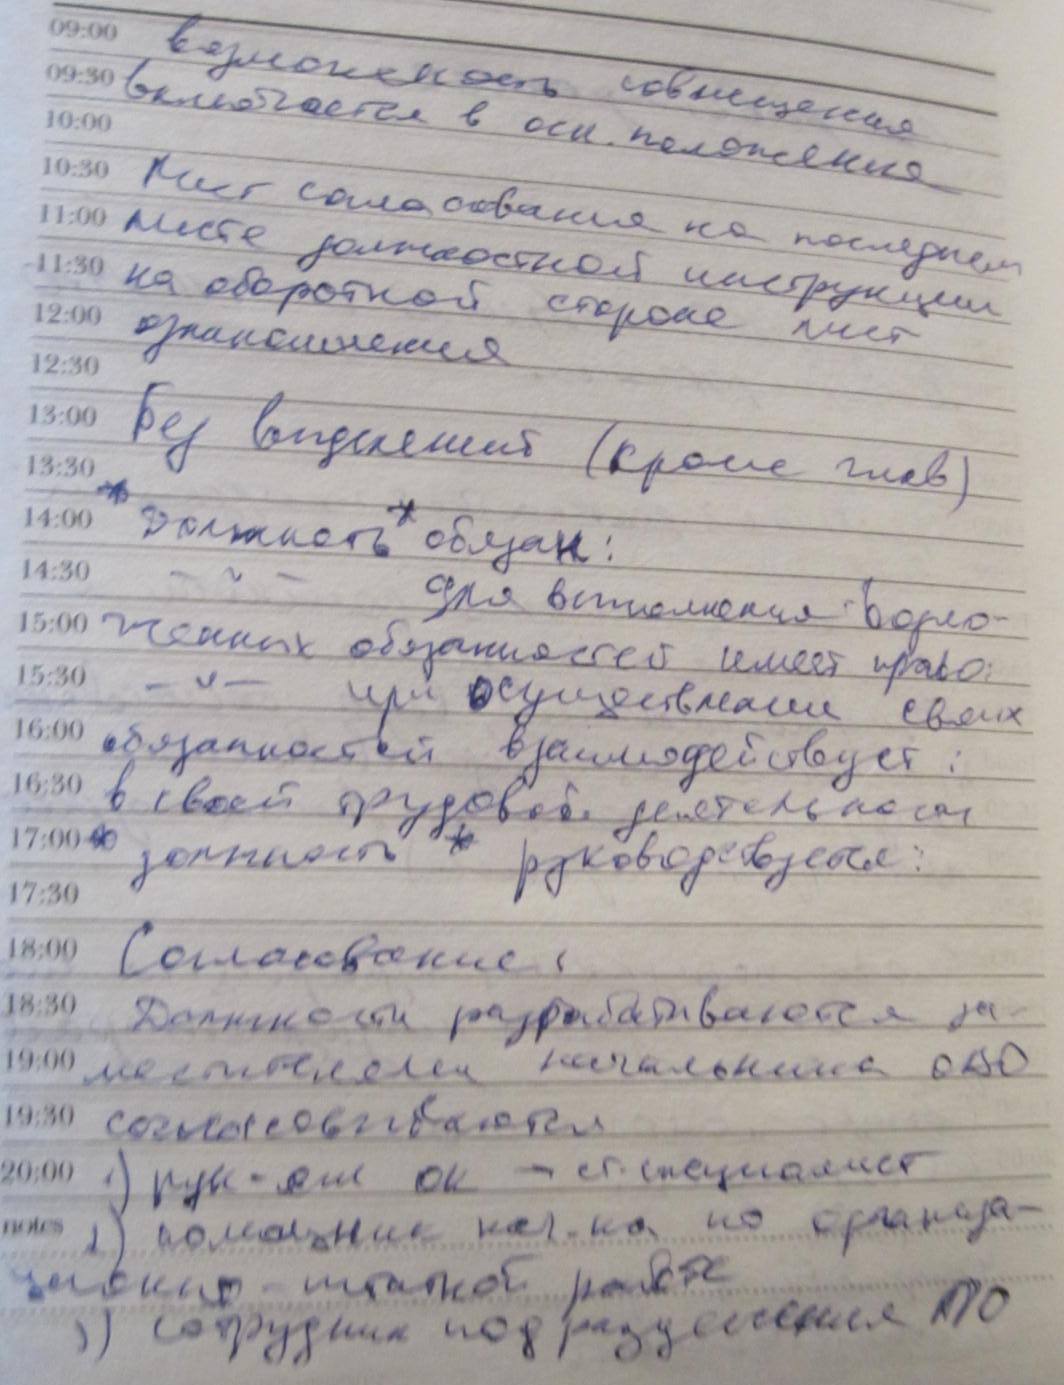 09:00 возможность совмещения
09:30 включается в осн. положения
10:00
10:30 Лист согласования на последнем
11:00 листе должностной инструкции
11:30 на оборотной стороне лист
12:00 ознакомления
12:30
13:00 Без выделений (кроме глав)
13:30
14:00 * Должность * обязан:
14:30 - " - для выполнения возло-
15:00 женных обязанностей имеет право:
15:30 - " - при осуществлении своих
16:00 обязанностей взаимодействует:
16:30 в своей трудовой деятельности
17:00 * должность * руководствуется:
17:30
18:00 Согласование:
18:30 Должности разрабатываются за-
19:00 местителем начальника
19:30 согласовываются
20:00 1) рук-лем ОК - ст. специалист
notes 2) помощник нач-ка по организа-
ционно-штатной работе
3) сотрудник подразделения